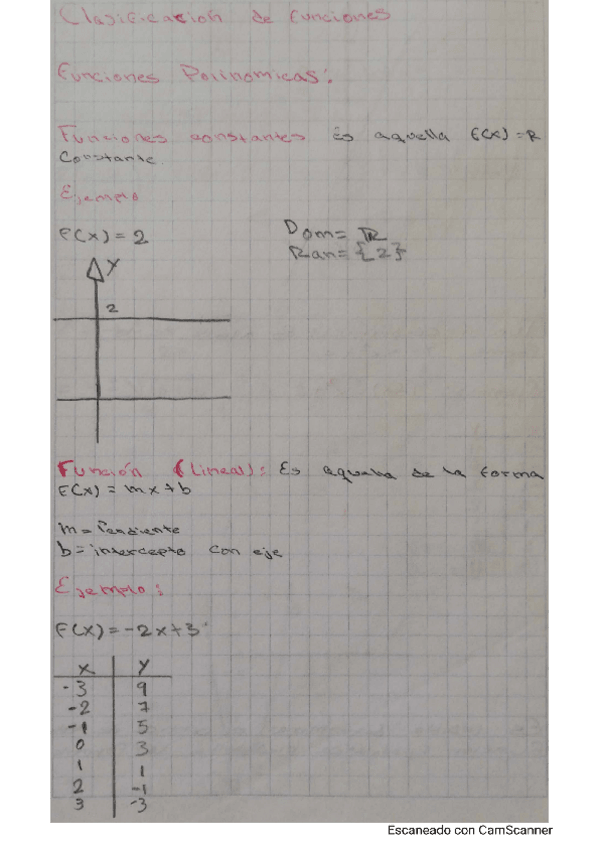 Clasificación de funciones
Funciones Polinomicas:
Funciones constantes Es aquella f(x)=R
Constante.
Ejemplo
f(x)=2
Dom= ℝ
Ran= {2}
y
2
Función (Lineal): Es aquella de la forma
f(x)=mx+b
m= Pendiente
b= intercepto con eje
Ejemplo:
f(x)=-2x+3
x y
-3 9
-2 7
-1 5
0 3
1 1
2 -1
3 -3
Escaneado con CamScanner